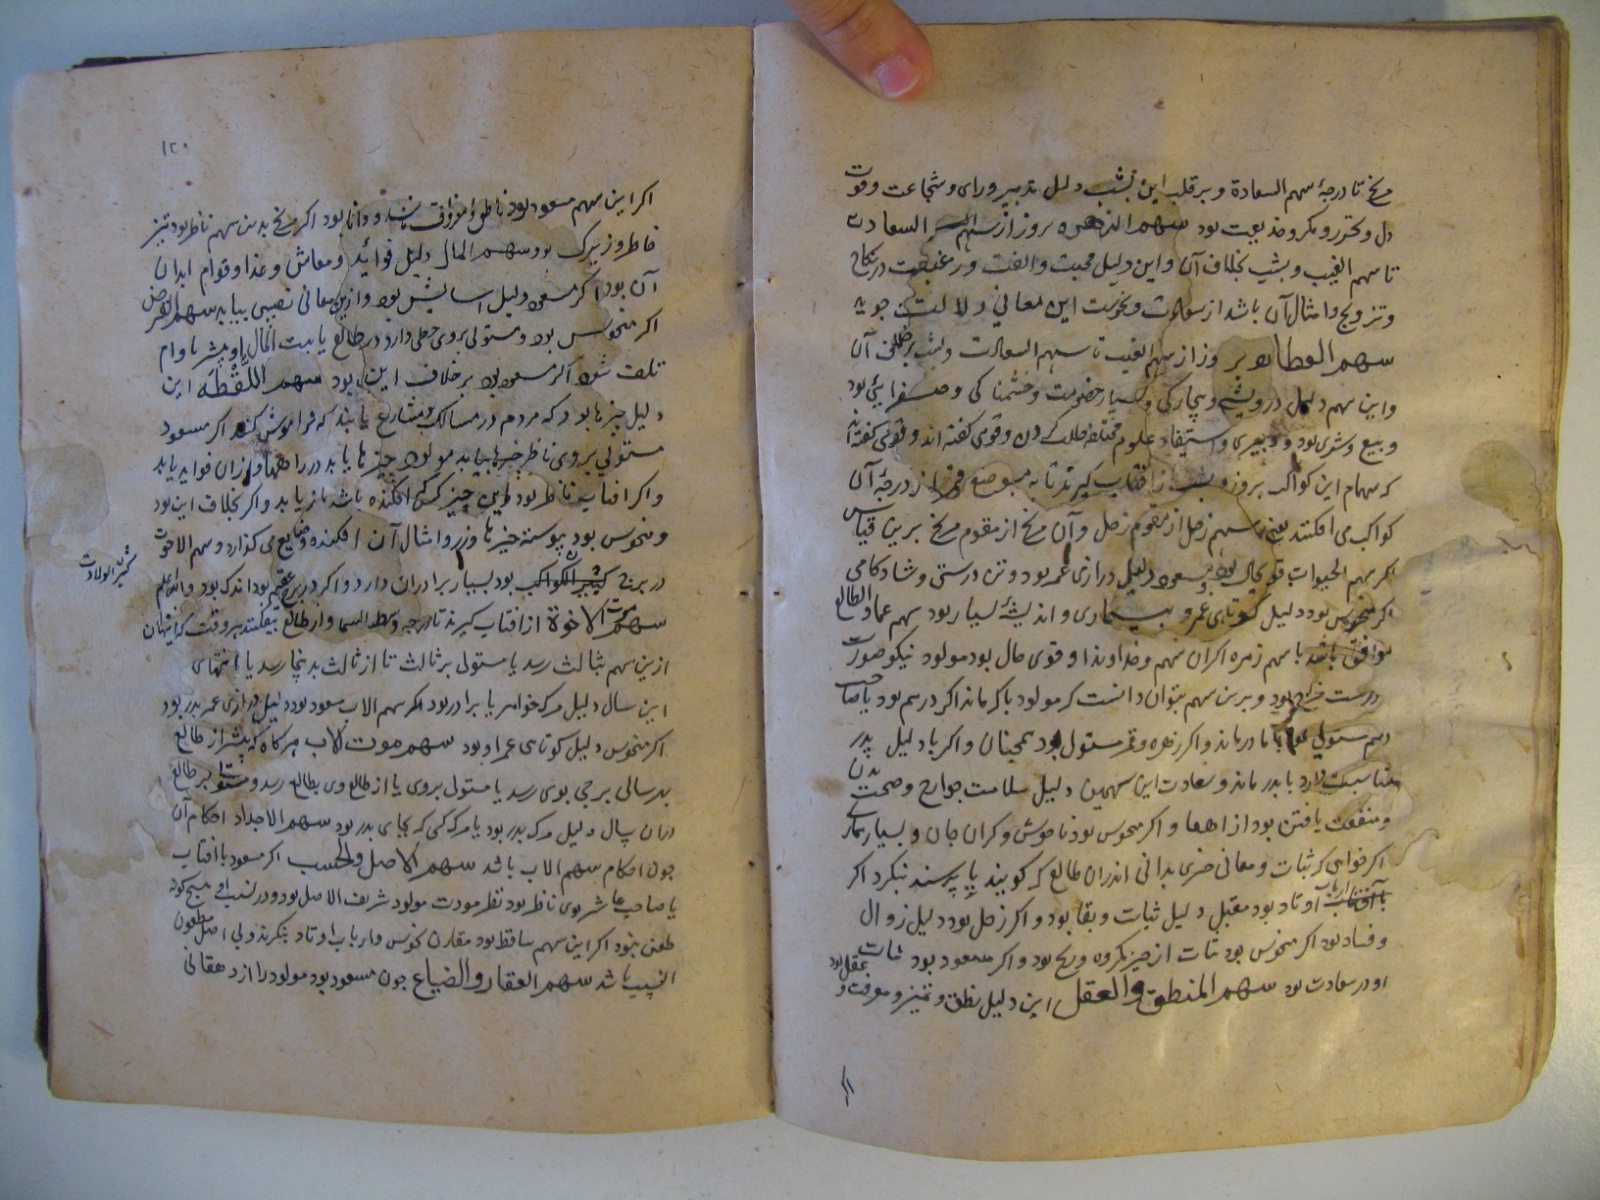 مریخ تا درجهٔ سهم السعادة و برقلب این بشب دلیل تدبیر و رای و شجاعت و قوت
دل و تهور و مکر و خدیعت بود سهم الزهره بروز از سهم السعادت
تا سهم الغیب و بشب بخلاف آن و این دلیل محبت و الفت و رغبت در نکاح
و تزویج و امثال آن باشد از سعادت و نحوست این معانی دلالت جوید
سهم العطارد بروز از سهم الغیب تا سهم السعادت و بشب برخلاف آن
و این سهم دلیل درویشی و بیچارگی و بسیار خصومت و خشمناکی و
و بیع و شری بود و دبیری و علوم مختلفه و قومی گفته اند و قومی گفته اند
که سهام این کواکب بروز و بشب از آفتاب گیرند تا به موضع قمر از درجهٔ آن
کواکب می افکنند یعنی سهم زحل از مقوم زحل و آن مریخ از مقوم مریخ برین قیاس
اگر سهم الحیوات قوی حال بود و مسعود دلیل درازی عمر بود و تن درستی و شادکامی
اگر منحوس بود دلیل کوتاهی عمر و بیماری و اندیشهٔ بسیار بود سهم عماد الطالع
موافق باشد با سهم زهره اگر آن سهم و خداوندا و قوی حال بود مولود نیکو صورت
درست مزاج بود و برین سهم بتوان دانست که مولود باکه ماند اگر درسم بود یا صاحب
سهم مستولی با مادر ماند و اگر زهره و قمر مستولی بود همچنان و اگر با دلیل پدر
مناسبت دارد با پدر ماند و سعادت این سهمین دلیل سلامت جوارح و صحت بدن
و منفعت یافتن بود از اهمها و اگر منحوس بود ناخوش و گران جان و بسیار
اگر خواهی که ثبات و معانی خبری بدانی اندران طالع که گویند یا پرسند بنگر اگر
با ارباب اوتاد بود مقبل دلیل ثبات و بقا بود و اگر زحل بود دلیل زوال
و فساد بود اگر منحوس بود ثبات از چیز مکروه و رنج بود و اگر مسعود بود ثبات
او در سعادت بود سهم المنطق والعقل این دلیل نطق و تمیز و معرفت و عقل بود
اگر
۱۲۰
اگر این سهم مسعود بود ناطق و دانا بود اگر مریخ بدین سهم ناظر بود تیز
خاطر و زیرک بود سهم المال دلیل فوائد و معاش و غذا و قوام ابدان
آن بود اگر مسعود دلیل آسایش بود و ازین معانی نصیبی بیابد سهم القرض
اگر منحوس بود و مستولی بر وی حظی دارد در طالع یا بیت المال او بیشتر با وام
تلف شود اگر مسعود بود برخلاف این بود سهم اللقطه این
دلیل چیزها بود که مردم در مسالک و مشارع یابند که فراموش کنند اگر مسعود
مستولی بر وی ناظر چیزها بیابد مولود چیزها یابد در راهها و ازان فواید یابد
و اگر آفتاب ناظر بود این چیز که افکنده باشد باز یابد و اگر بخلاف این بود
و منحوس بود پیوسته چیزها و زر و امثال آن افکنده و ضایع می گذارد و سهم الاخوت
در برج کثیر الکواکب بود بسیار برادران دارد و اگر در برج عقیم بود اندک بود والله اعلم
کثیر الولادت
سهم موت الاخوة از آفتاب گیرند تا درجه وسط السما و از طالع بیفکنند هر وقت که انتهای
ازین سهم بثالث رسد یا مستولی بر ثالث تا از ثالث بدینجا رسد یا انتهای
این سال دلیل مرگ خواهر یا برادر بود اگر سهم الاب مسعود بود دلیل درازی عمر پدر بود
اگر منحوس دلیل کوتاهی عمر او بود سهم موت الاب هرگاه که از طالع
بدر سالی برجی بوی رسد یا مستولی بر وی یا از طالع وی بطالع رسد و مستولی بر طالع
دران سال دلیل مرگ پدر بود یا مرگ کسی که بجای پدر بود سهم الاجداد احکام آن
چون احکام سهم الاب باشد سهم الاصل والحسب اگر مسعود با آفتاب
یا صاحب عاشر بوی ناظر بود نظر مودت مولود شریف الاصل بود و در نسب او هیچ گونه
طعن نبود اگر این سهم ساقط بود مقارن نحوس و ارباب اوتاد بنگرند وی اصل مطعون
النسب باشد سهم العقار والضیاع چون مسعود بود مولود را از دهقانی